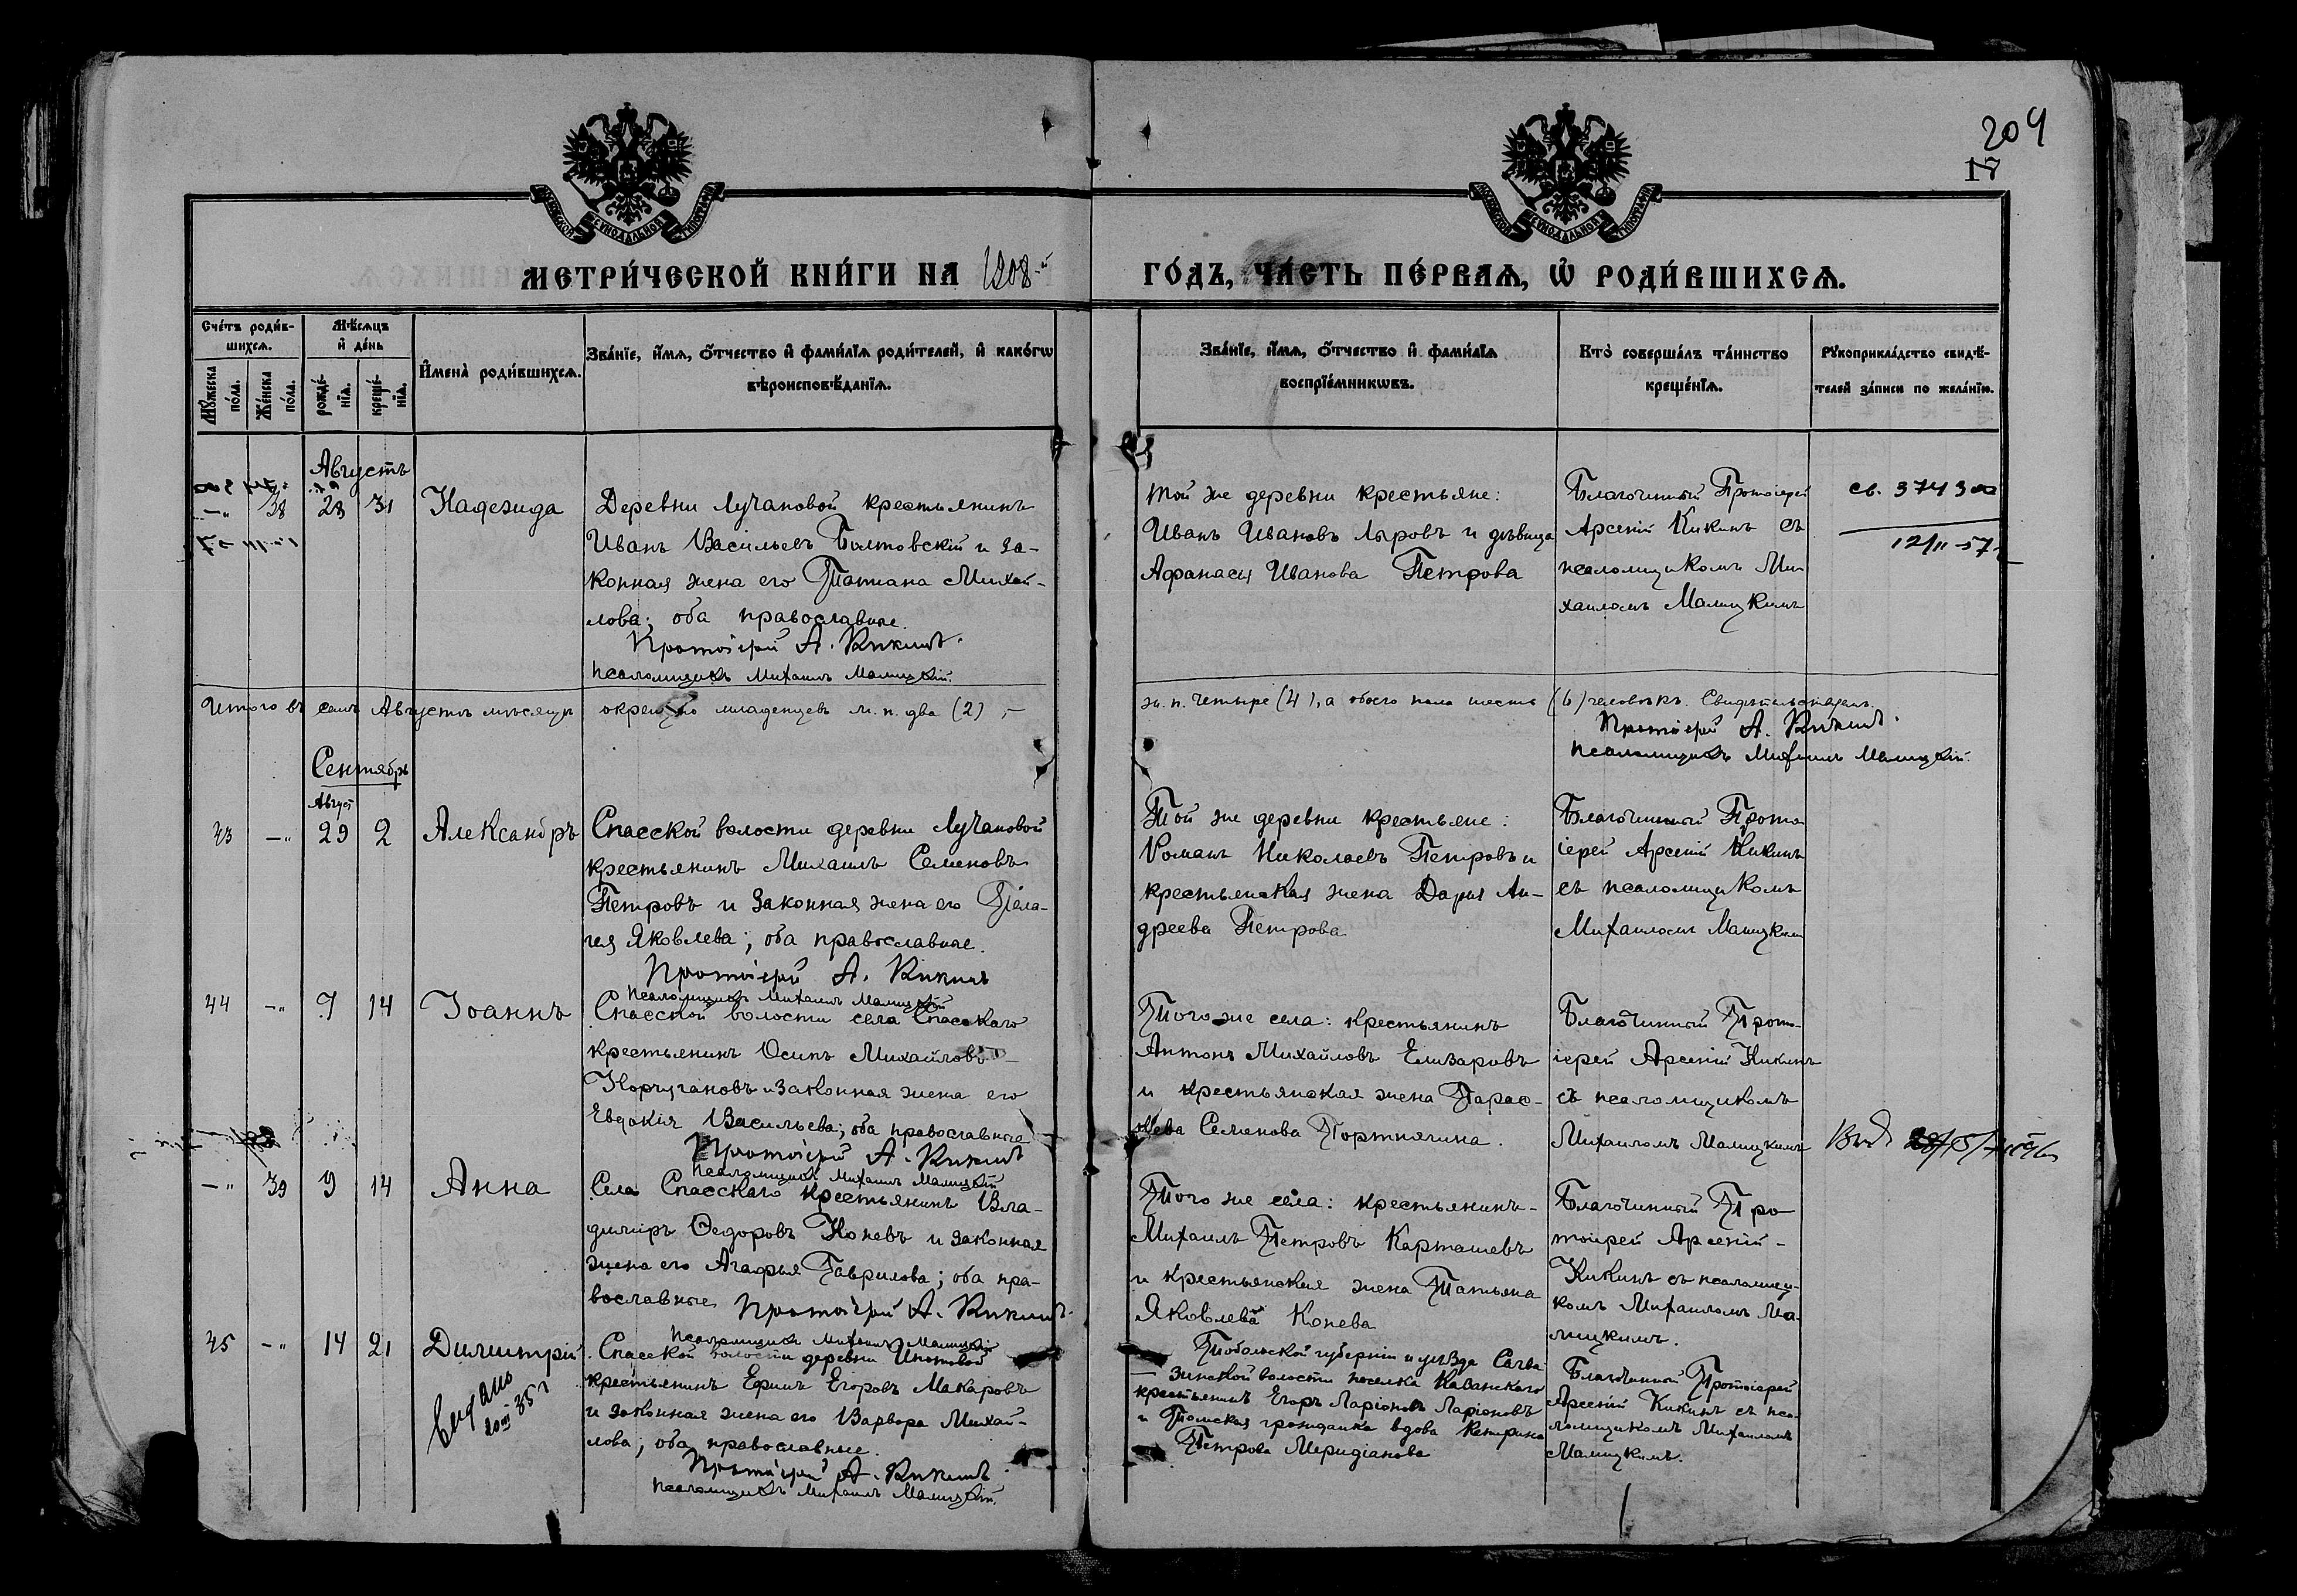 204
17
МЕТРИ́ЧЕСКОЙ КНИ́ГИ НА 1908-й
ГО́ДЪ, ЧА́СТЬ ПЕ́РВАѦ, Ѿ РОДИ́ВШИХСѦ.
Сче́тъ роди́в-
шихсѧ.
Мѣ́сѧцъ
и҆ де́нь
Мꙋ́жеска по́ла.
Же́нска по́ла.
рожде́-
нїѧ.
креще́-
нїѧ.
И҆мена̀ роди́вшихсѧ.
Зва́нїе, и҆́мѧ, ѻ҆́тчество и҆ фами́лїѧ роди́телей, и҆ како́гѡ
вѣроисповѣ́данїѧ.
Зва́нїе, и҆́мѧ, ѻ҆́тчество и҆ фами́лїѧ
воспрїе́мникѡвъ.
Кто̀ соверша́лъ та́инство
креще́нїѧ.
Рꙋкоприкла́дство свидѣ́-
телей за́писи по жела́нїю.
Августъ
-„ 38 28 31 Надежда
Деревни Лучановой крестьянинъ
Иванъ Васильевъ Болтовскій и за-
конная жена его Татiана Михай-
лова; оба православные.
Протоіерей А. Кикинъ.
Псаломщикъ Михаилъ Малицкій.
той же деревни крестьяне:
Иванъ Ивановъ Лыровъ и дѣвица
Афанасія Иванова Петрова
Благочинный Протоіерей
Арсеній Кикинъ съ
псаломщикомъ Ми-
хаиломъ Малицкимъ
св. 374300
12/II-57г
Итого въ семъ Августѣ мѣсяцѣ окрещено младенцевъ м. п. два (2), -
ж. п. четыре (4), а обоего пола шесть (6) человѣкъ. Свидѣтельствуемъ.
Протоіерей А. Кикинъ.
Псаломщикъ Михаилъ Малицкій.
Сентябрь
Август
43 -„ 29 2 Александръ
Спасской волости деревни Лучановой
крестьянинъ Михаилъ Семеновъ
Петровъ и законная жена его Пела-
гея Яковлева; оба православные.
Протоіерей А. Кикинъ
Псаломщикъ Михаилъ Малицкій
Той же деревни крестьяне:
Романъ Николаевъ Петровъ и
крестьянская жена Дарья Ан-
дреева Петрова
Благочинный Прото-
іерей Арсеній Кикинъ
съ псаломщикомъ
Михаиломъ Малицким
44 -„ 7 14 Іоаннъ
Спасской волости села Спасскаго
крестьянинъ Осипъ Михайловъ
Корчугановъ и законная жена его
Евдокія Васильева; оба православные
Протоіерей А. Кикинъ
Псаломщикъ Михаилъ Малицкій
Того же села: крестьянинъ
Антонъ Михайловъ Елизаровъ
и крестьянская жена Парас-
кева Семенова Портнягина.
Благочинный Прото-
іерей Арсеній Кикинъ
съ псаломщикомъ
Михаиломъ Малицкимъ
-„ 39 9 14 Анна
Села Спасскаго крестьянинъ Вла-
диміръ Ѳедоровъ Коневъ и законная
жена его Агафья Гаврилова; оба пра-
вославные Протоіерей А. Кикинъ.
Псаломщикъ Михаилъ Малицкій
Того же села: крестьянинъ-
Михаилъ Петровъ Карташевъ
и крестьянская жена Татьяна
Яковлева Конева
Благочинный Про-
тоіерей Арсеній-
Кикинъ съ псаломщи-
комъ Михаиломъ Ма-
лицкимъ.
45 -„ 14 21 Димитрій
Выдано
20III 35 г
Спасской волости деревни Ипатовой
крестьянинъ Ефимъ Егоровъ Макаровъ
и законная жена его Варвара Михай-
лова; оба православные.
Протоіерей А. Кикинъ.
Псаломщикъ Михаилъ Малицкій.
Тобольской губерніи и уѣзда
волости поселка Казанскаго
крестьянинъ Егоръ Ларіоновъ Ларіоновъ
и Томская гражданка вдова
Петрова Меридіанова
Благочинный Протоіерей
Арсеній Кикинъ съ пса-
ломщикомъ Михаиломъ
Малицкимъ.